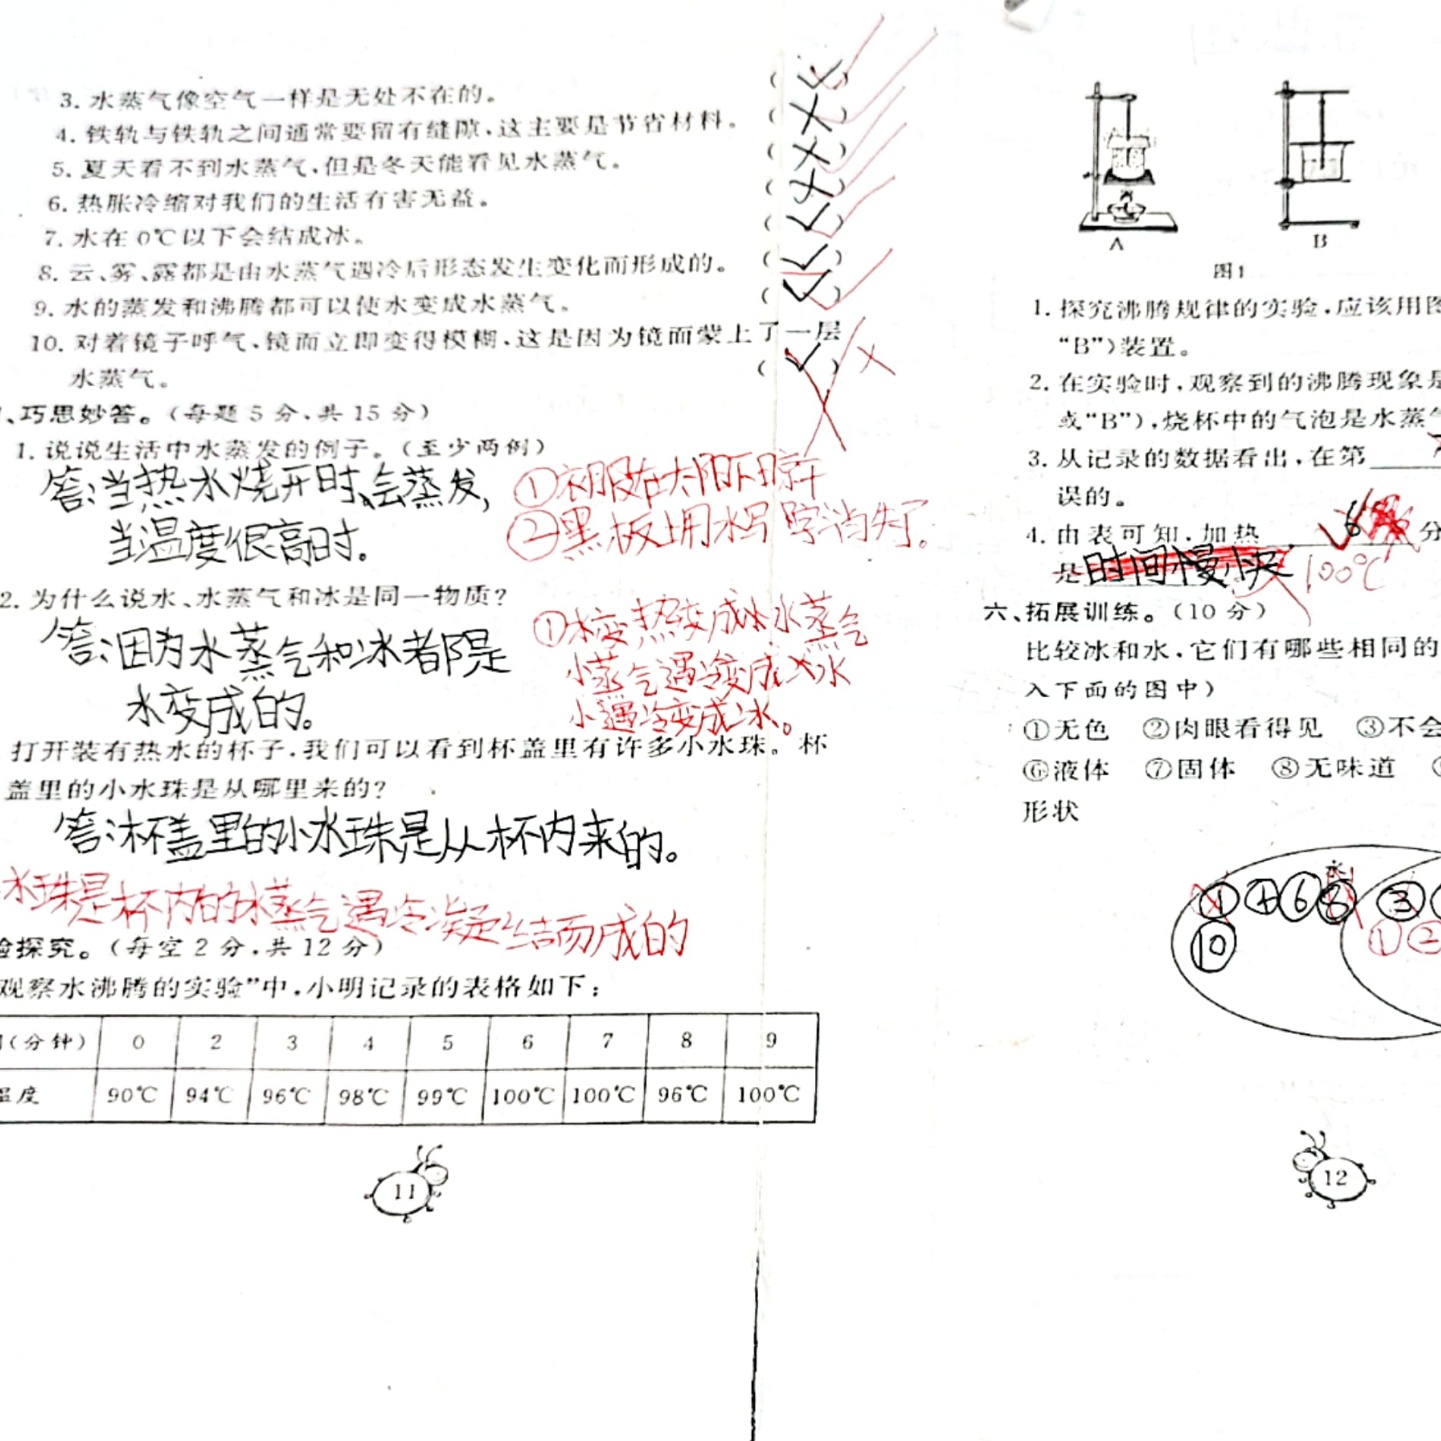 3. 水蒸气像空气一样是无处不在的。 (✓)
4. 铁轨与铁轨之间通常要留有缝隙,这主要是节省材料。 (×)
5. 夏天看不到水蒸气,但是冬天能看见水蒸气。 (×)
6. 热胀冷缩对我们的生活有害无益。 (×)
7. 水在0℃以下会结成冰。 (✓)
8. 云、雾、露都是由水蒸气遇冷后形态发生变化而形成的。 (✓)
9. 水的蒸发和沸腾都可以使水变成水蒸气。 (✓)
10. 对着镜子呼气,镜面立即变得模糊,这是因为镜面蒙上了一层
水蒸气。 (✓) ×
、巧思妙答。(每题5分,共15分)
1. 说说生活中水蒸发的例子。(至少两例)
答:当热水烧开时,会蒸发,
当温度很高时。
①衣服在太阳下晾干
②黑板上用水写字消失了。
2. 为什么说水、水蒸气和冰是同一物质?
答:因为水蒸气和冰者都是
水变成的。
①水变热变成水蒸气
水蒸气遇冷变成水
水遇冷变成冰。
打开装有热水的杯子,我们可以看到杯盖里有许多小水珠。杯
盖里的小水珠是从哪里来的?
答:杯盖里的小水珠是从杯内来的。
水珠是杯内的水蒸气遇冷凝结而成的
验探究。(每空2分,共12分)
观察水沸腾的实验”中,小明记录的表格如下:
(分钟) 0 2 3 4 5 6 7 8 9
温度 90℃ 94℃ 96℃ 98℃ 99℃ 100℃ 100℃ 96℃ 100℃
11
A B
图1
1. 探究沸腾规律的实验,应该用图
“B”)装置。
2. 在实验时,观察到的沸腾现象是
或“B”),烧杯中的气泡是水蒸气
3. 从记录的数据看出,在第
误的。
4. 由表可知,加热 6 分
是时间慢小夹 100℃
六、拓展训练。(10分)
比较冰和水,它们有哪些相同的
入下面的图中)
①无色 ②肉眼看得见 ③不会
⑥液体 ⑦固体 ⑧无味道
形状
水
① ④ ⑥ ⑧ ③
⑩ ① ②
12